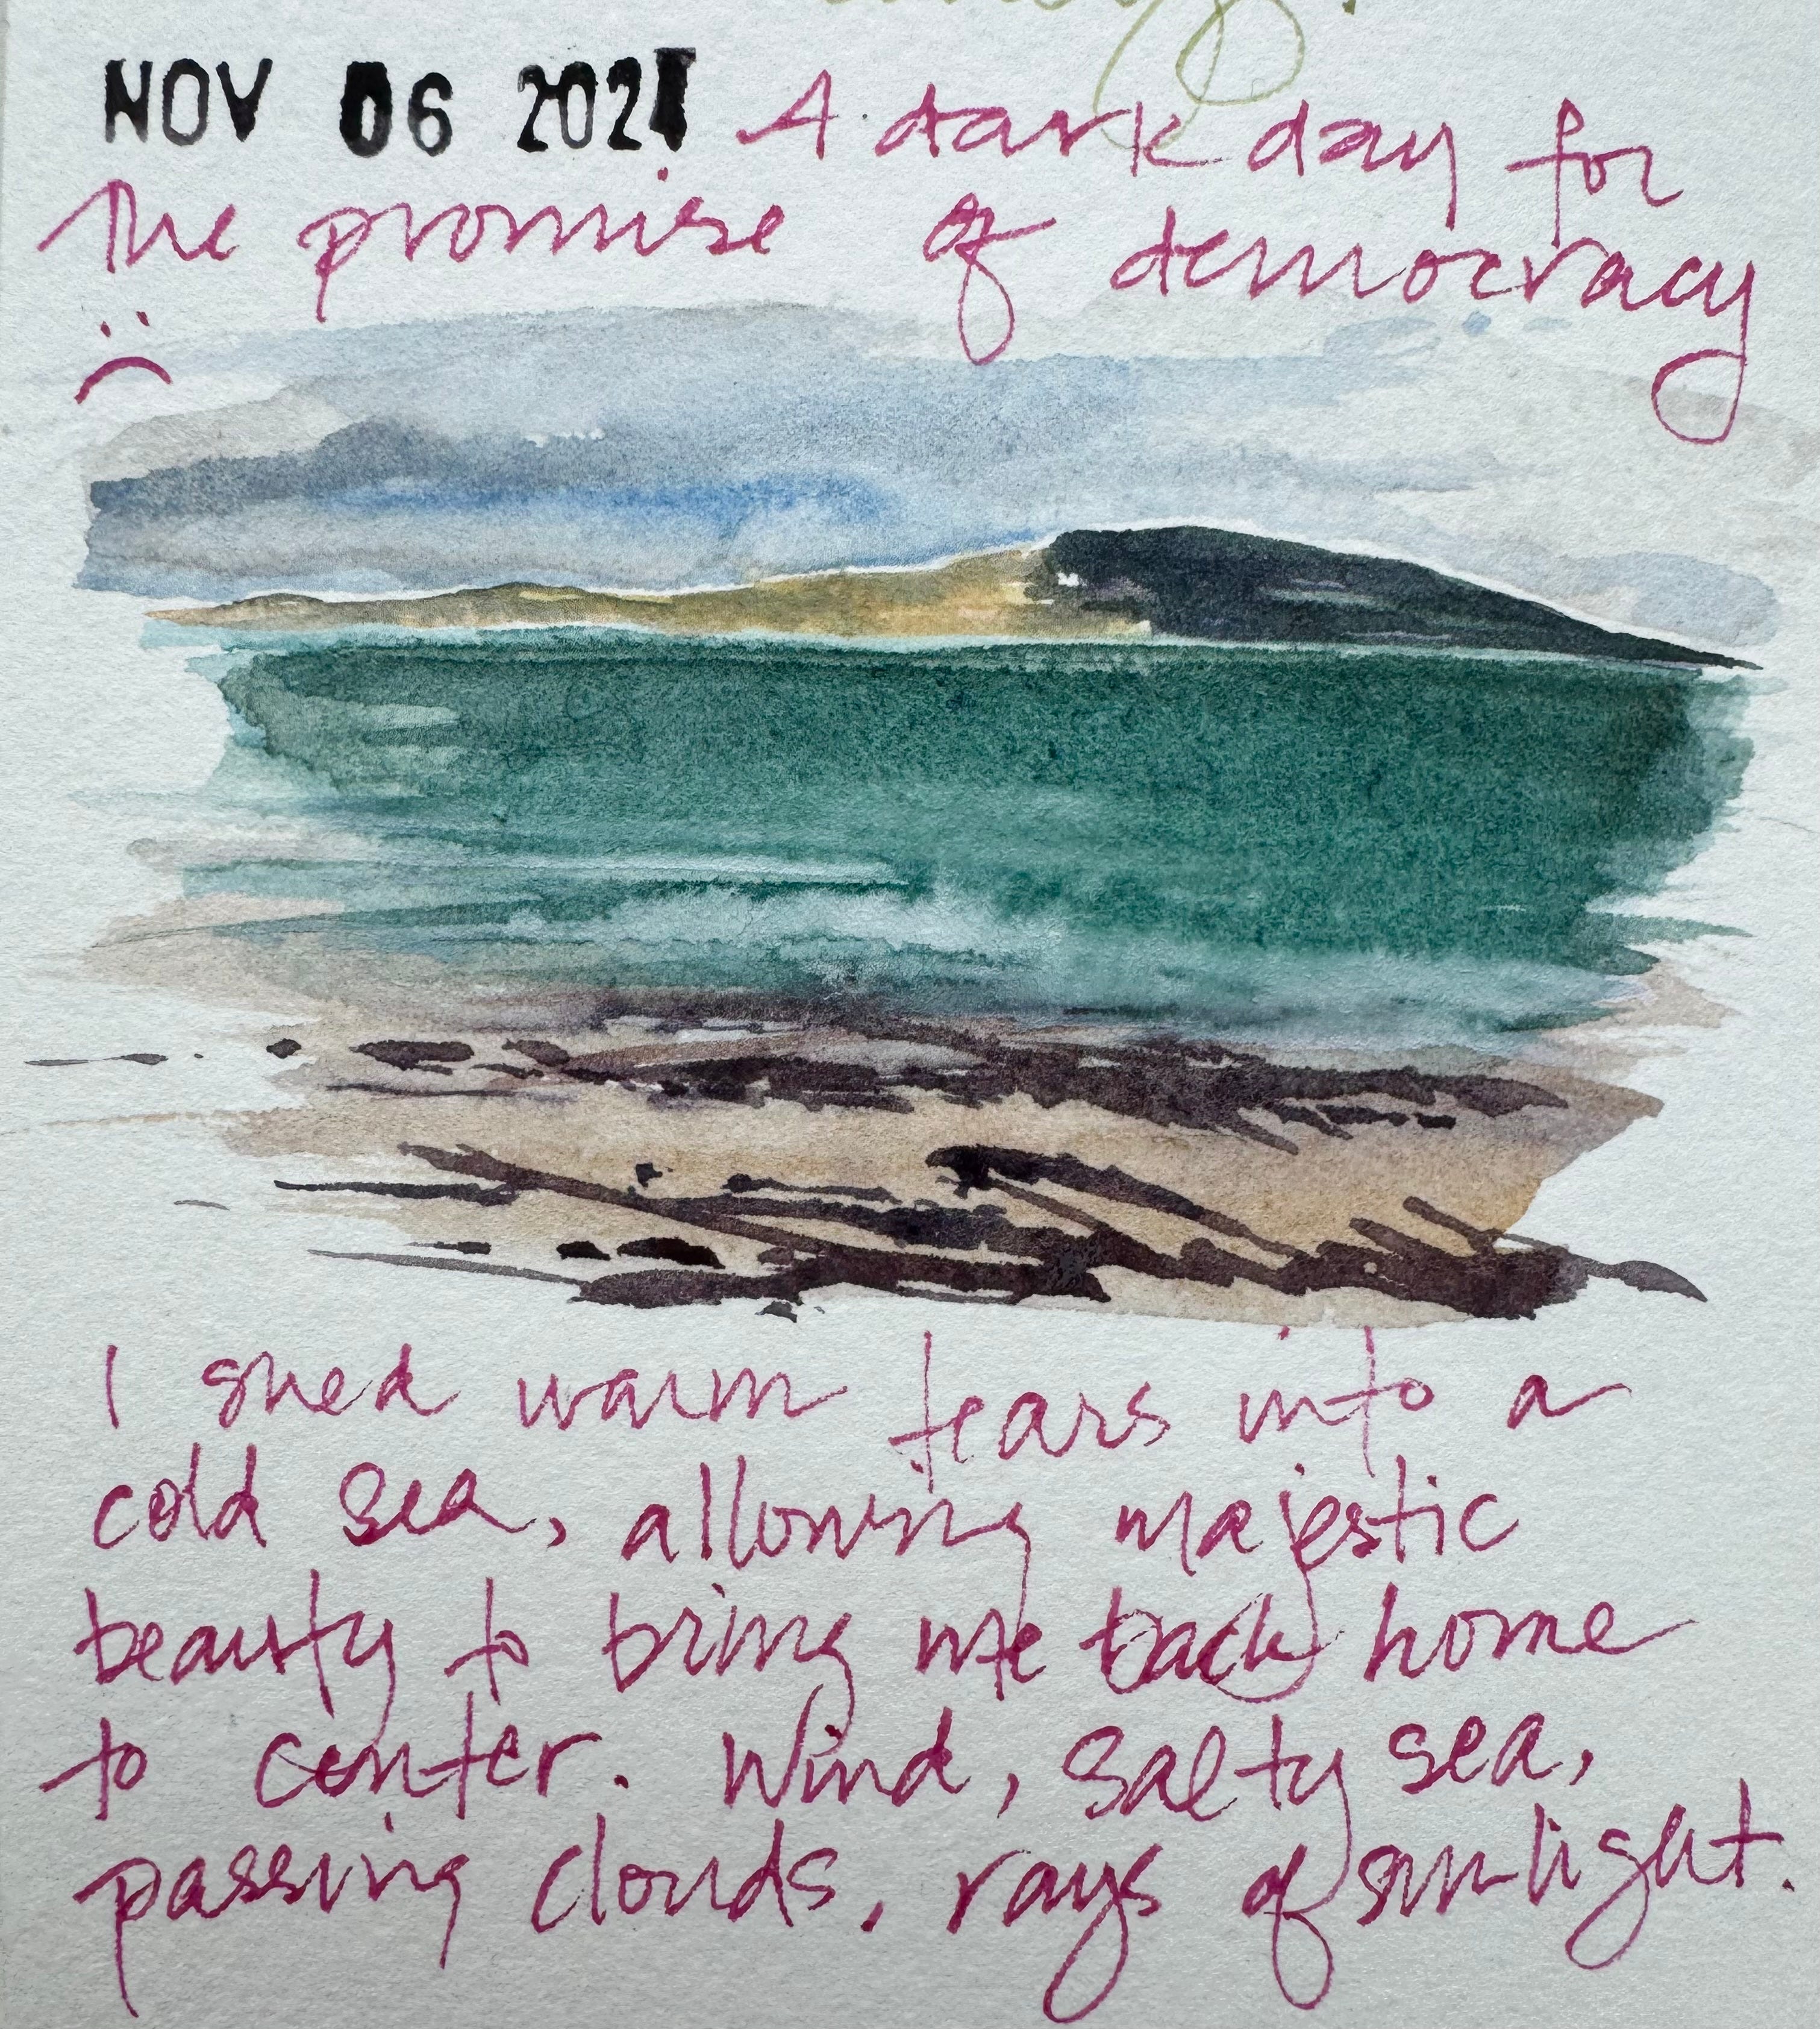 NOV 06 202
A dark day for
the promise of democracy
:(
I shed warm tears into a
cold sea, allowing majestic
beauty to bring me back home
to center. Wind, salty sea,
passing clouds, rays of sunlight.